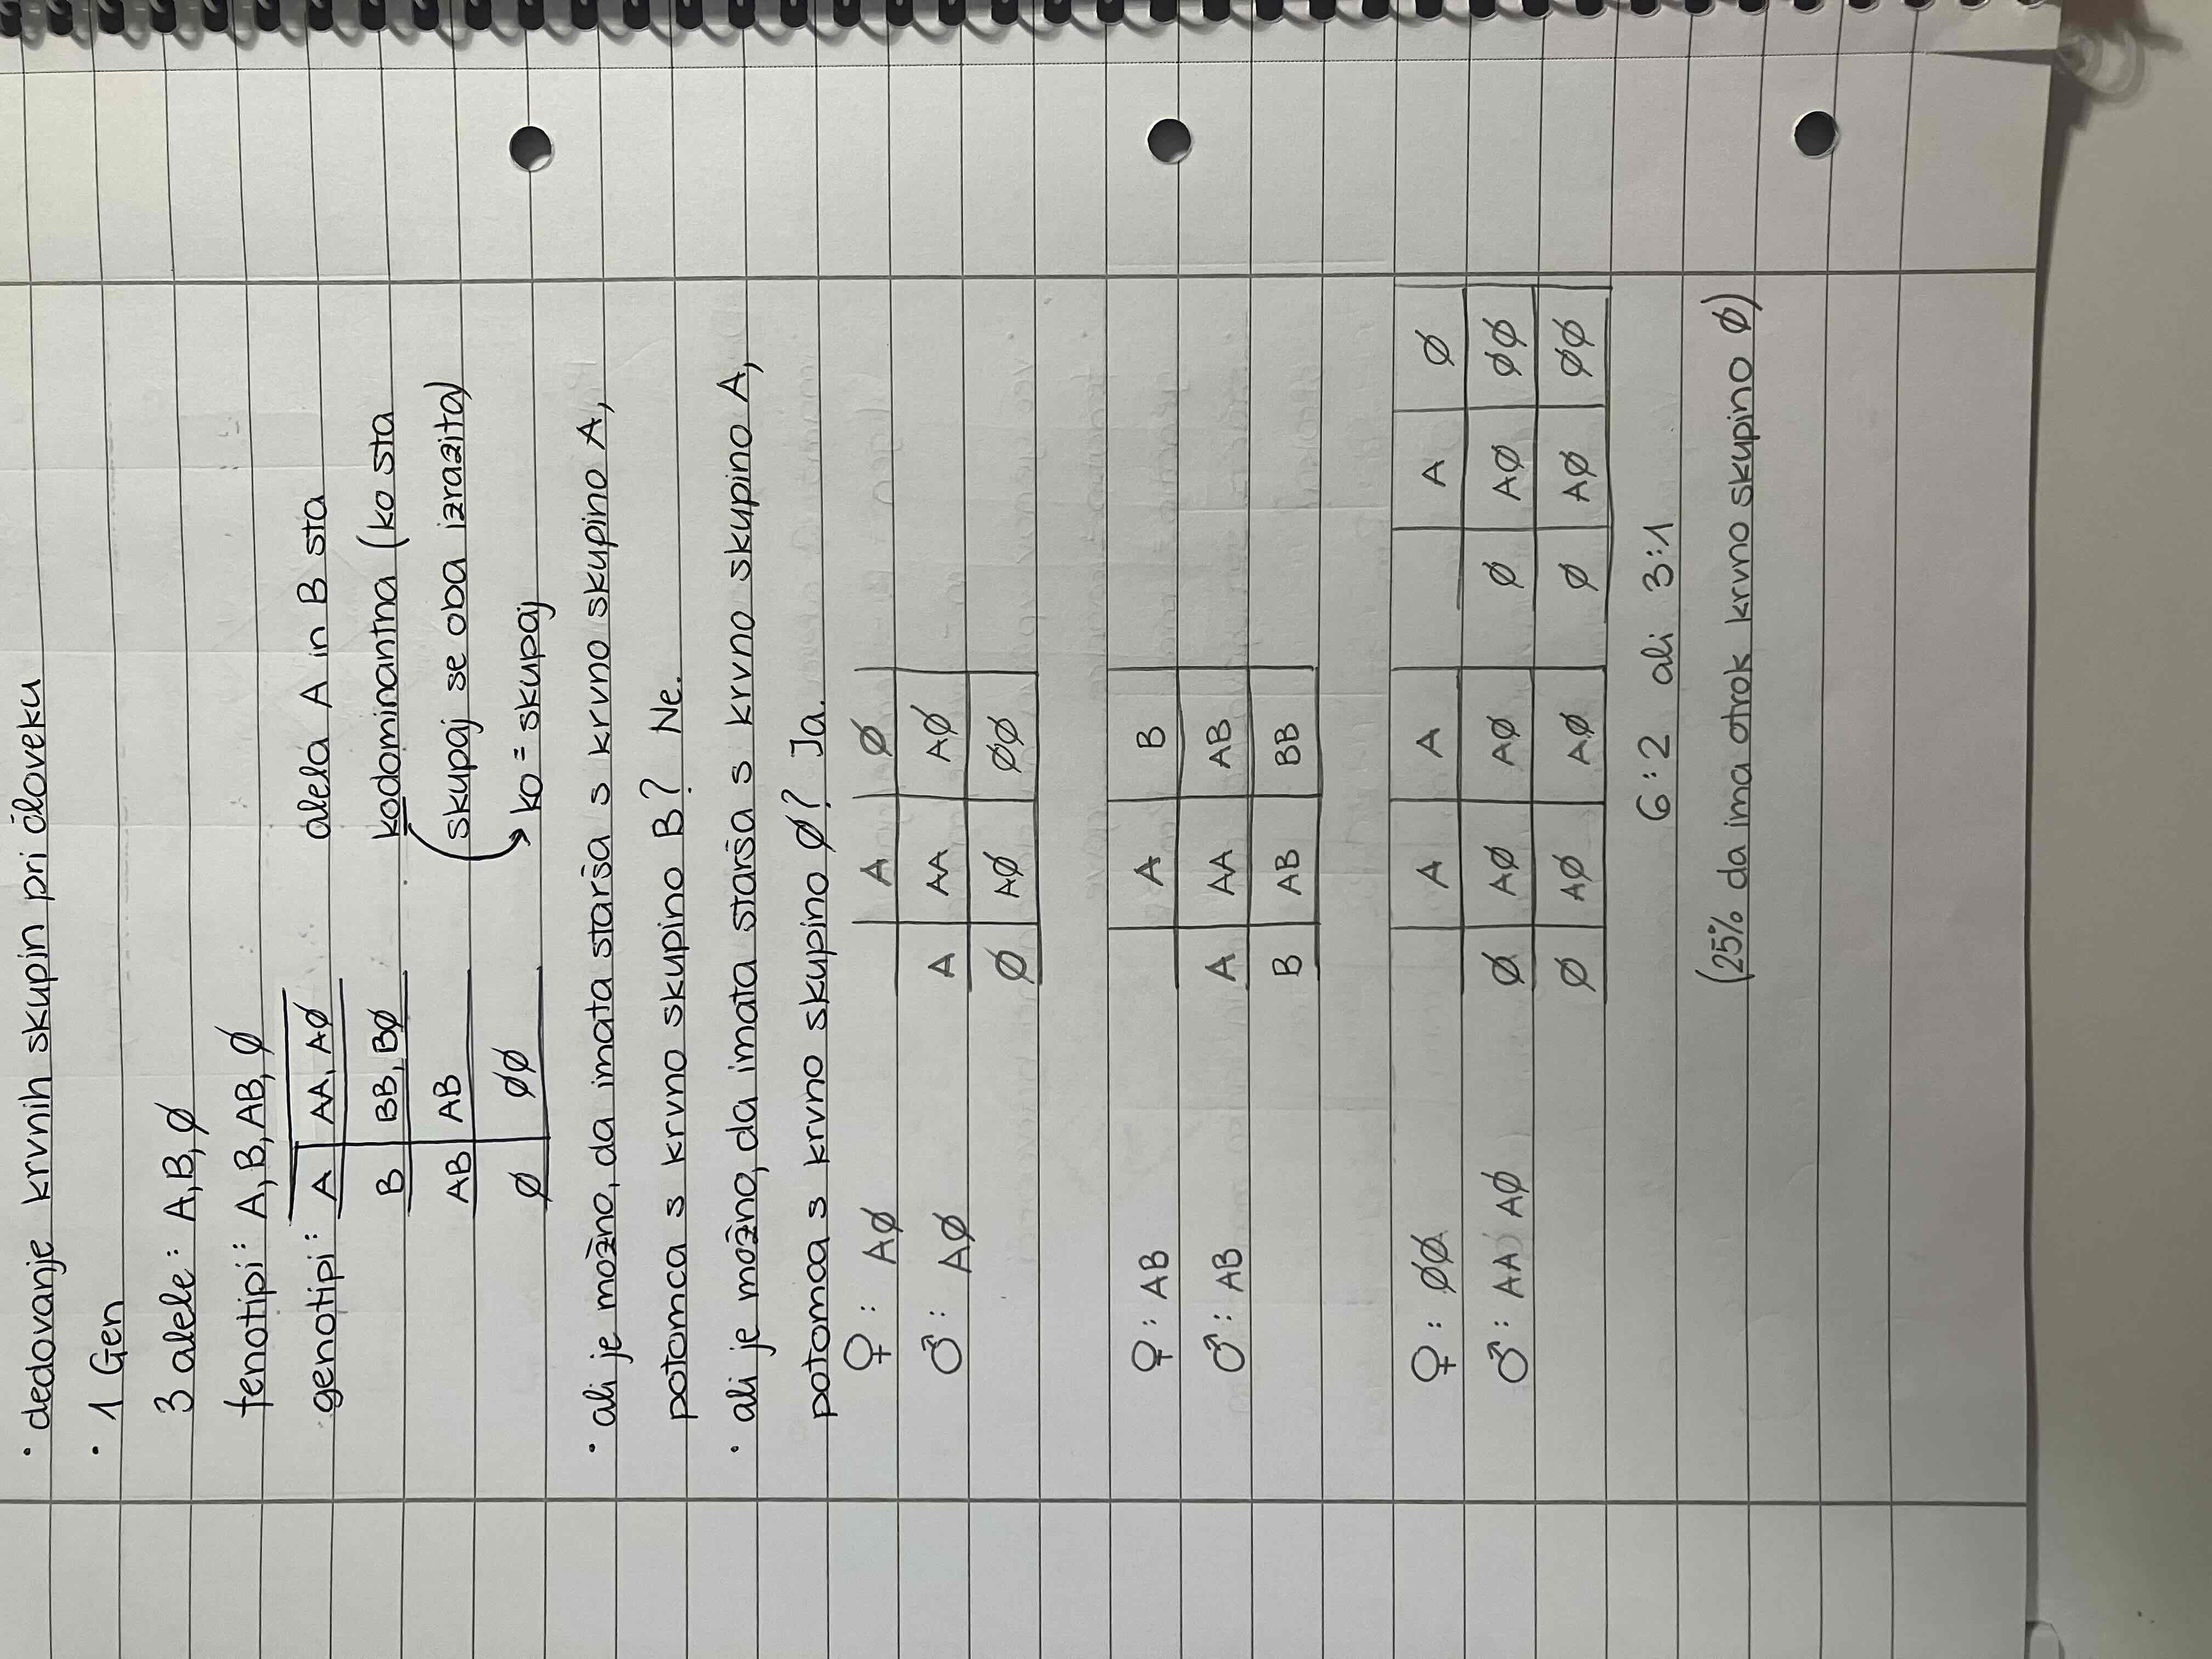 • dedovanje krvnih skupin pri človeku
• 1 Gen
3 alele: A, B, Ø
fenotipi: A, B, AB, Ø
genotipi: A | AA, AØ alela A in B sta
B | BB, BØ kodominantna (ko sta
AB | AB skupaj se oba izrazita)
Ø | ØØ ko = skupaj
• ali je možno, da imata starša s krvno skupino A,
potomca s krvno skupino B? Ne.
• ali je možno, da imata starša s krvno skupino A,
potomca s krvno skupino Ø? Ja.
♀: AØ | A | Ø
♂: AØ A | AA | AØ
Ø | AØ | ØØ
♀: AB | A | B
♂: AB A | AA | AB
B | AB | BB
♀: ØØ | A | A | A | Ø
♂: AA AØ Ø | AØ | AØ Ø | AØ | ØØ
Ø | AØ | AØ Ø | AØ | ØØ
6:2 ali 3:1
(25% da ima otrok krvno skupino Ø)